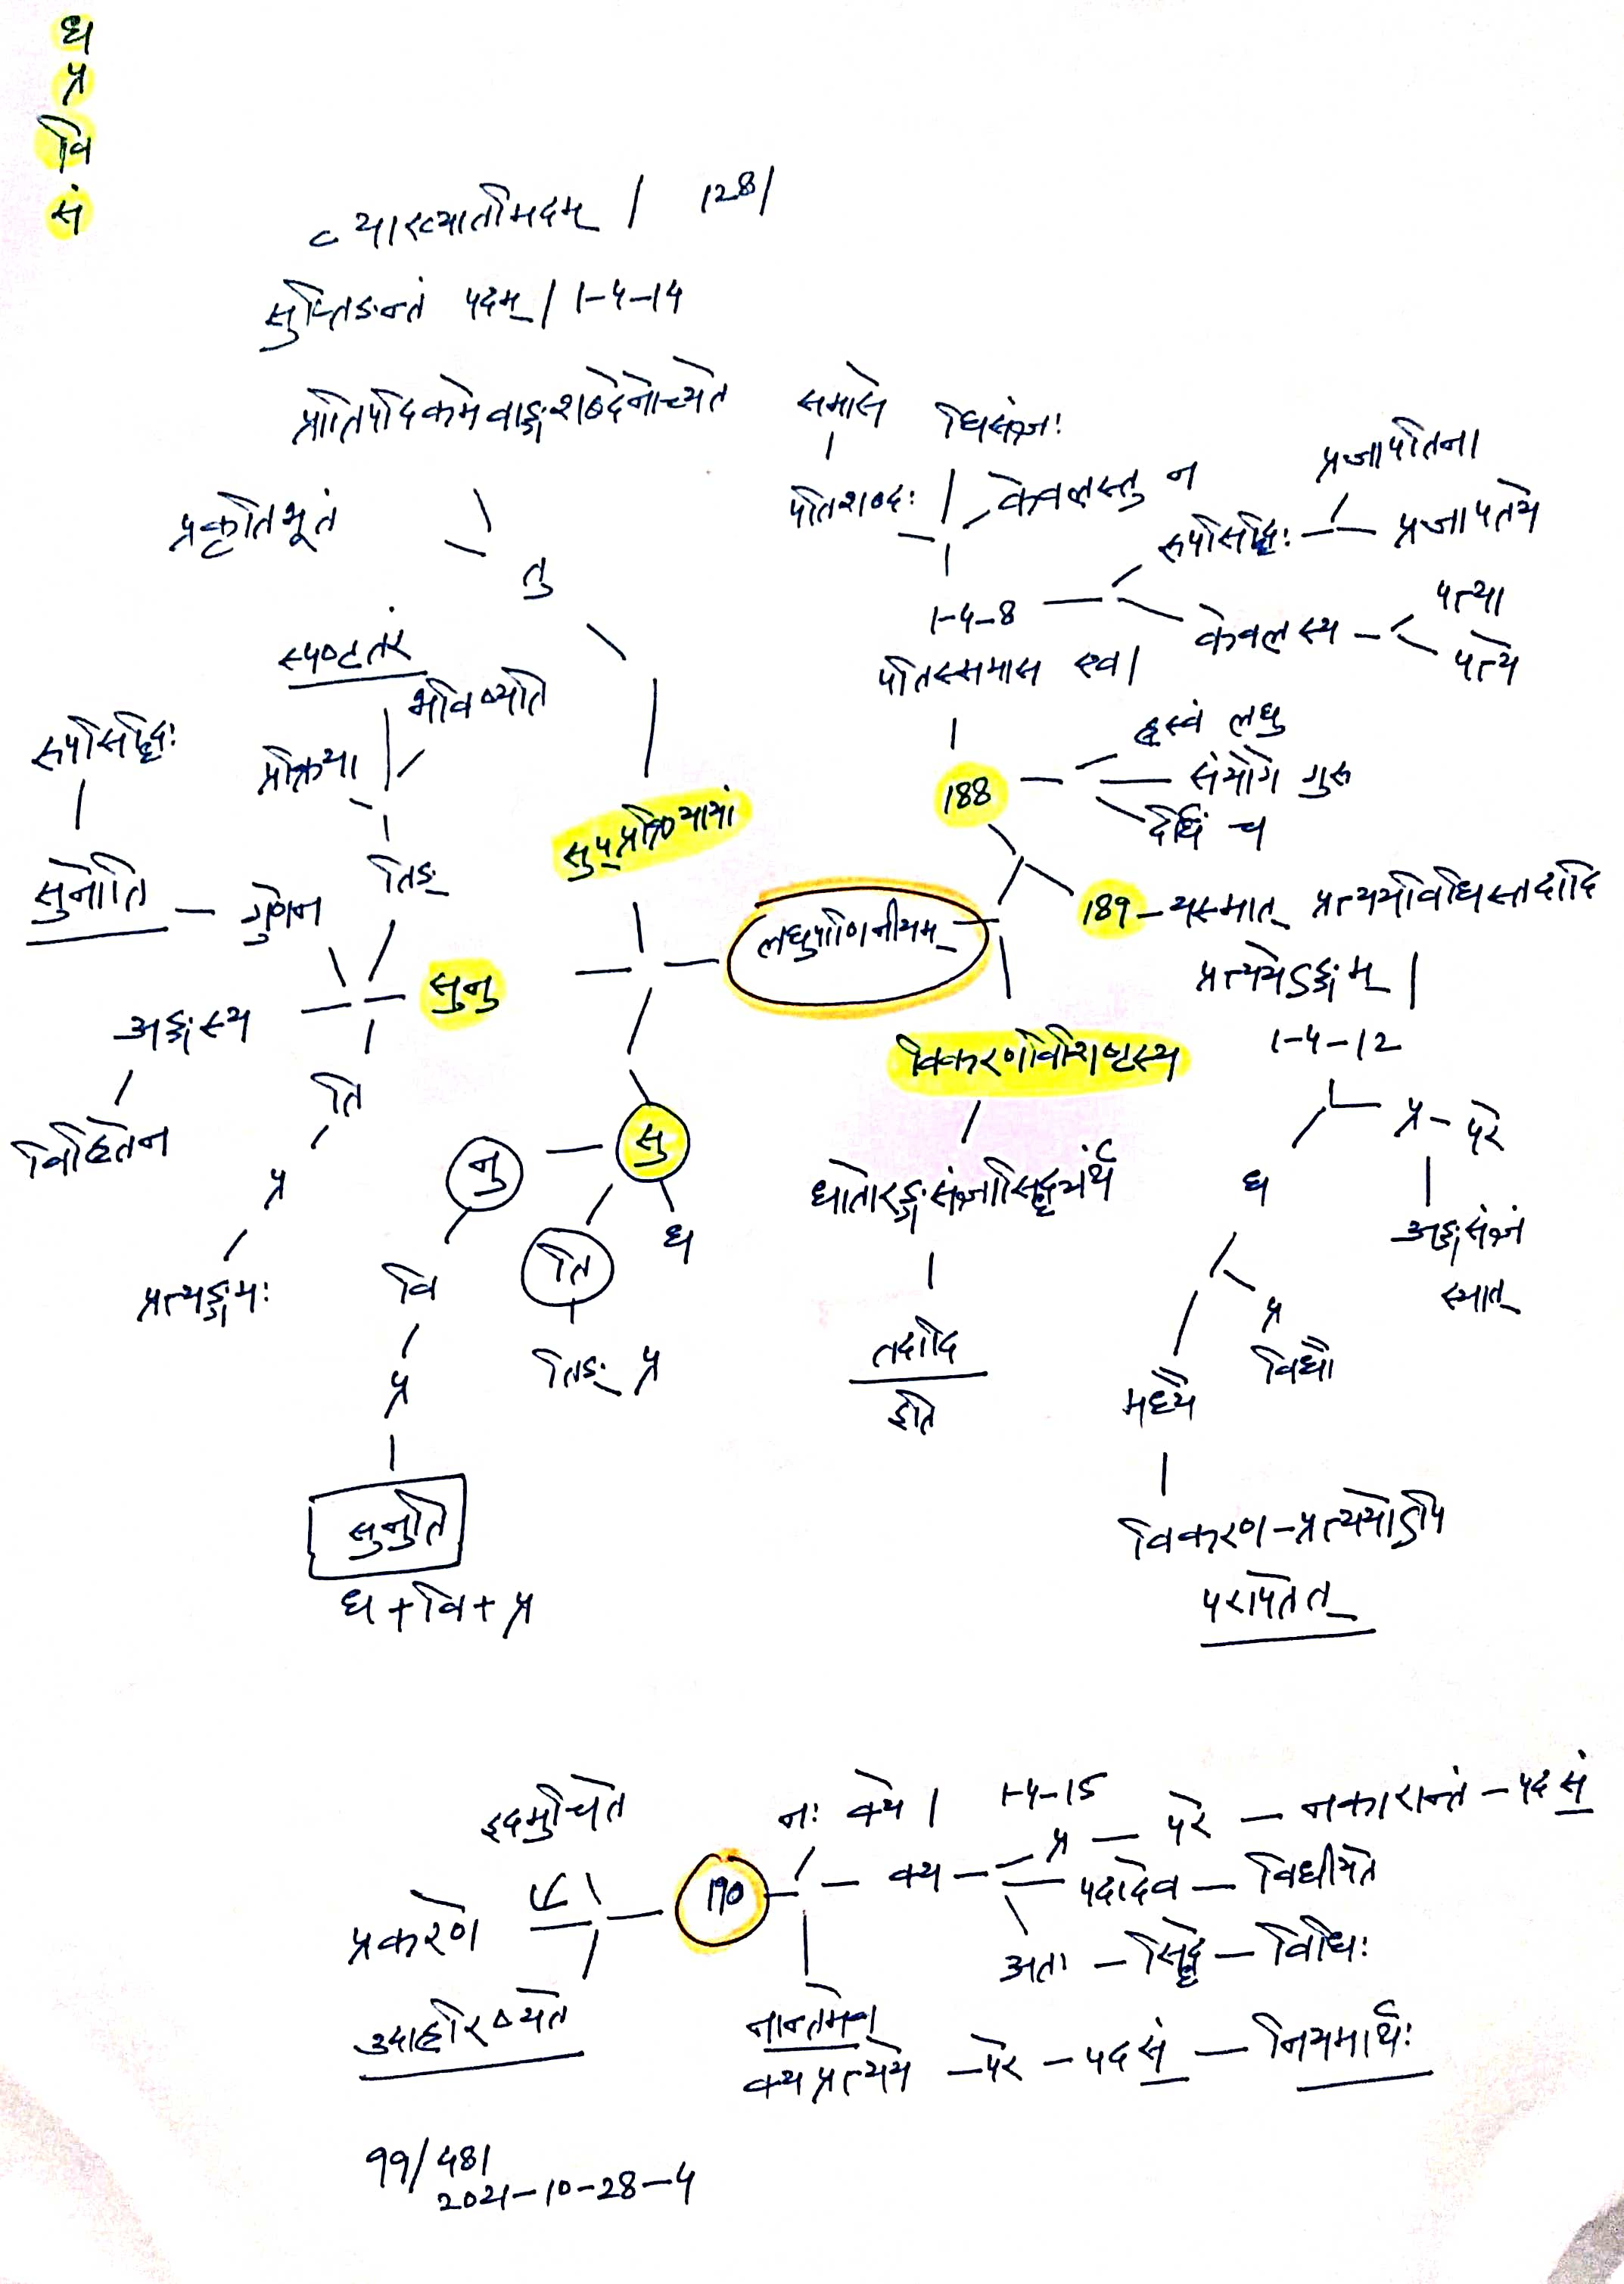 ध
प्र
वि
सं
व्याख्यातमिदम् / 128/
सुप्तिङन्तं पदम् / 1-4-14
प्रातिपदिकमेवाङ्गशब्देनोच्यते
प्रकृतिभूतं
तु
स्पष्टतरं
भविष्यति
प्रक्रिया
तिङ्
रूपसिद्धिः
सुनोति
गुणेन
अङ्गस्य
विहितेन
ति
प्र
प्रत्यङ्गयः
सुनु
सुप्प्रक्रियायां
लघुपाणिनीयम्
सु
नु
ति
ध
वि
प्र
तिङ् प्र
सुनुति
ध + वि + प्र
समासे
घिसंज्ञः
पतिशब्दः
केवलस्तु न
1-4-8
रूपसिद्धिः
प्रजापतिना
प्रजापतये
केवलस्य
पत्या
पत्ये
पतिस्समास एव /
188
ह्रस्वं लघु
संयोगे गुरु
दीर्घं च
189 - यस्मात् प्रत्ययविधिस्तदादि
प्रत्ययेऽङ्गम् /
1-4-12
प्र - परे
अङ्गसंज्ञं
स्यात्
ध
प्र
विधौ
मध्ये
विकरण-प्रत्ययोऽपि
परापतेत्
विकरणविशिष्टस्य
धातोरङ्गसंज्ञासिद्ध्यर्थं
तदादि
इति
इदमुचिते
प्रकरणे
उदाहरिष्यते
190
नः क्ये / 1-4-15
क्य - प्र - परे - नकारान्तं - पद सं
पदादेव - विधीयते
अतः - सिद्धे - विधिः
नान्तमेव
क्य प्रत्यये - परे - पद सं - नियमार्थः
99/481
2021-10-28-4